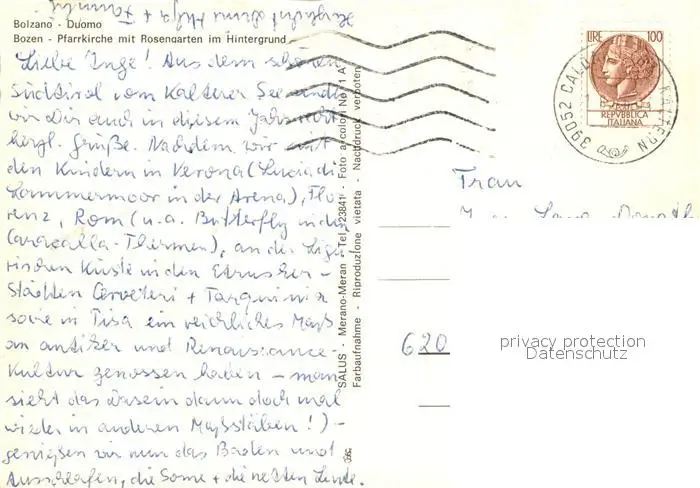 Herzlichst Deine Helga + Familie
Bolzano - Duomo
Bozen - Pfarrkirche mit Rosengarten im Hintergrund
Liebe Inge! Aus dem schönen
Südtirol vom Kalterer See senden
wir Dir auch in diesem Jahr recht
herzl. Grüße. Nachdem wir mit
den Kindern in Verona (Lucia di
Lammermoor in der Arena), Flo-
renz, Rom (u.a. Butterfly in den
Caracalla-Thermen), an der Ligu-
rischen Küste in den Etrusker-
Städten Cerveteri + Tarquinia
sowie in Pisa ein reichliches Maß
an antiker und Renaissance-
Kultur genossen haben - man
sieht das dann doch mal
wieder in anderen Maßstäben!) -
genießen wir nun das Baden und
Ausschlafen, die Sonne + die netten Leute.
SALUS - Merano-Meran - Tel. 23841 - Foto a colori No. 1 A
Farbaufnahme - Riproduzione vietata - Nachdruck verboten
LIRE 100
REPVBBLICA
ITALIANA
39052 KALTERN
Frau
620
privacy protection
Datenschutz